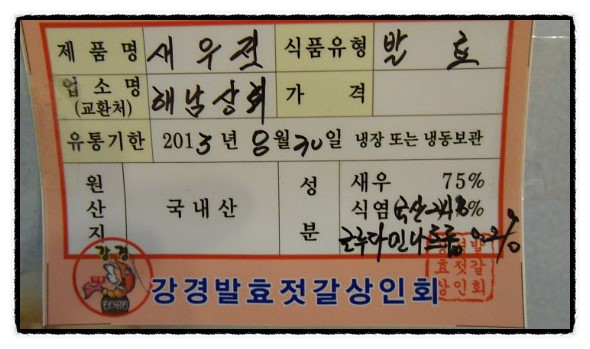 제품명 새우젓 식품유형 발효
업소명 해남상회 가격
(교환처)
유통기한 2013년 8월 30일 냉장 또는 냉동보관
원산지 국내산 성분 새우 75%
식염
강경
강경발효젓갈상인회
강경발
효젓갈
상인회